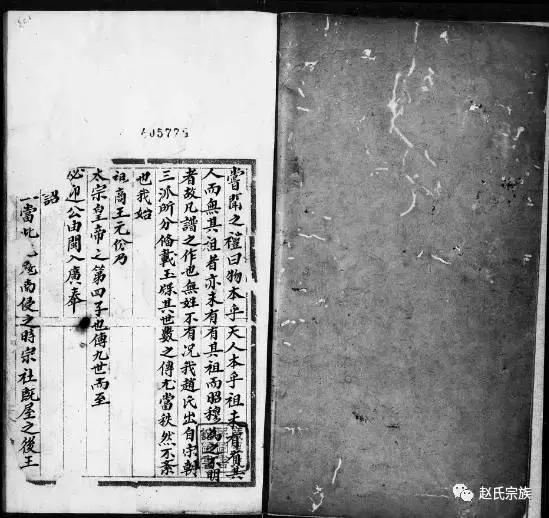 405775
嘗聞之禮曰物本乎天人本乎祖未有有其
人而無其祖者亦未有有其祖而昭穆為之不明
者故凡譜之作也無姓不有况我趙氏出自宗朝
三派所分俻載玉牒其世數之傳尤當秩然不紊
也我始
祖商王元份乃
太宗皇帝之第四子也傳九世而至
必迎公由閩入廣奉
詔
一當此
南使之時宗社既屋之後王
赵氏宗族